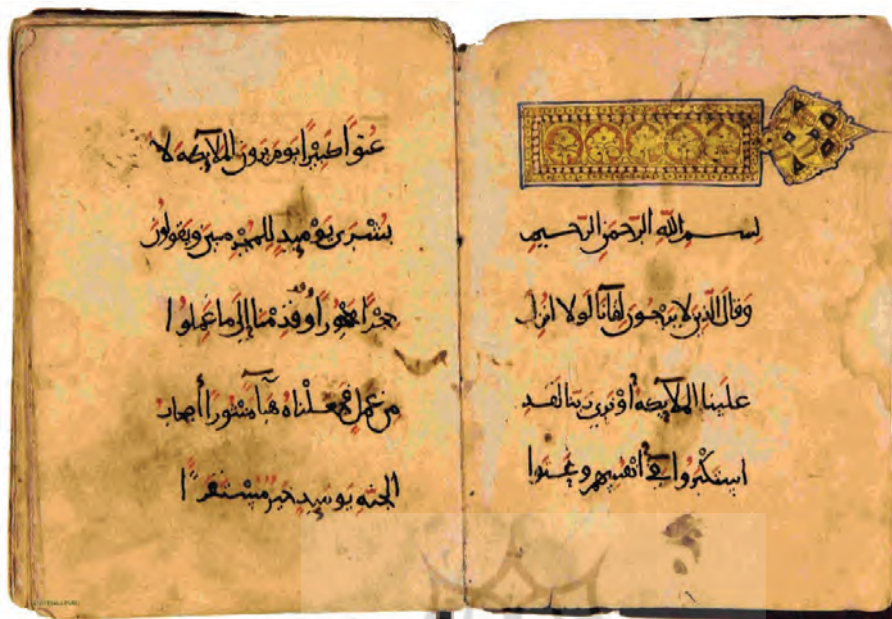 بسم الله الرحمن الرحيم
وقال الذين لا يرجون لقانا لولا انزل
علينا الملايكه أو نرى ربنا لقد
استكبروا في أنفسهم وعتوا
عتوًا كبيرًا يوم يرون الملايكه لا
بشرى يوميدٍ للمجرمين ويقولون
حجرًا محجورًا وقدمنا إلى ما عملوا
من عملٍ فجعلناه هبآً منثورًا أصحاب
الجنه يوميدٍ خيرٌ مستقرًا